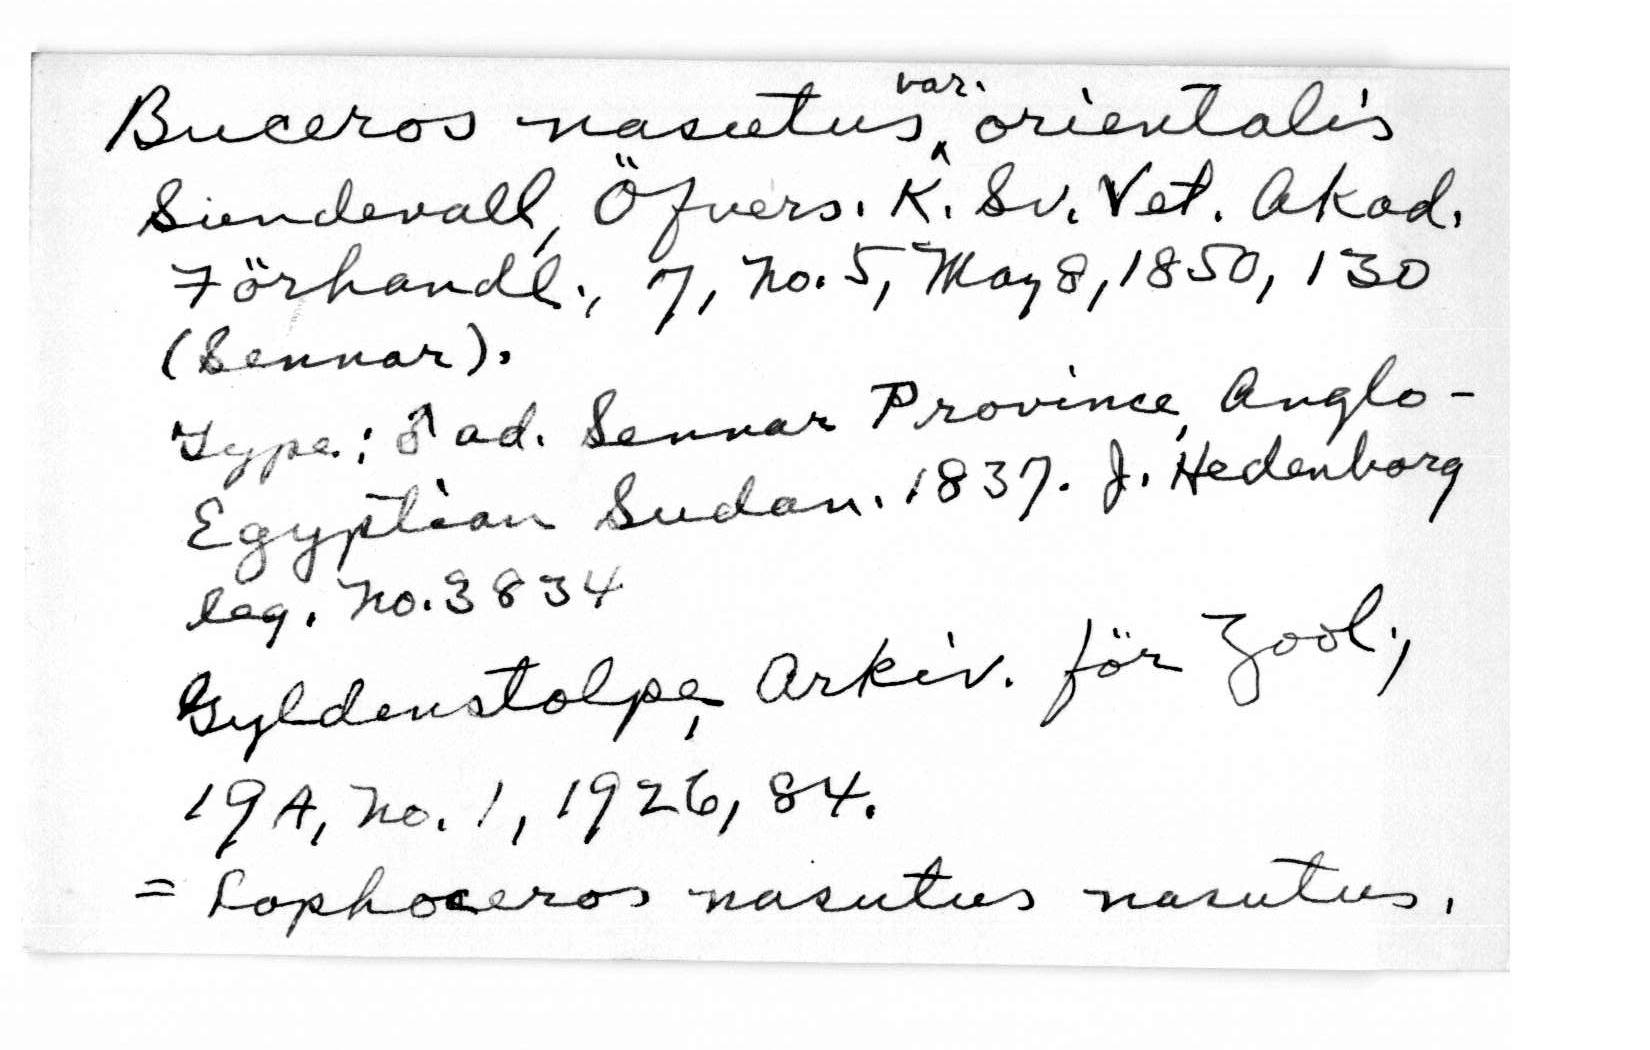 Buceros nasutus var. orientalis
Sundevall, Öfvers. K. Sv. Vet. Akad.
Förhandl., 7, No. 5, May 8, 1850, 130
(Sennar).
Type: ♂ ad. Sennar Province, Anglo-
Egyptian Sudan. 1837. J. Hedenborg
leg. No. 3834
Gyldenstolpe, Arkiv. för Zool.,
19A, No. 1, 1926, 84.
= Lophoceros nasutus nasutus.